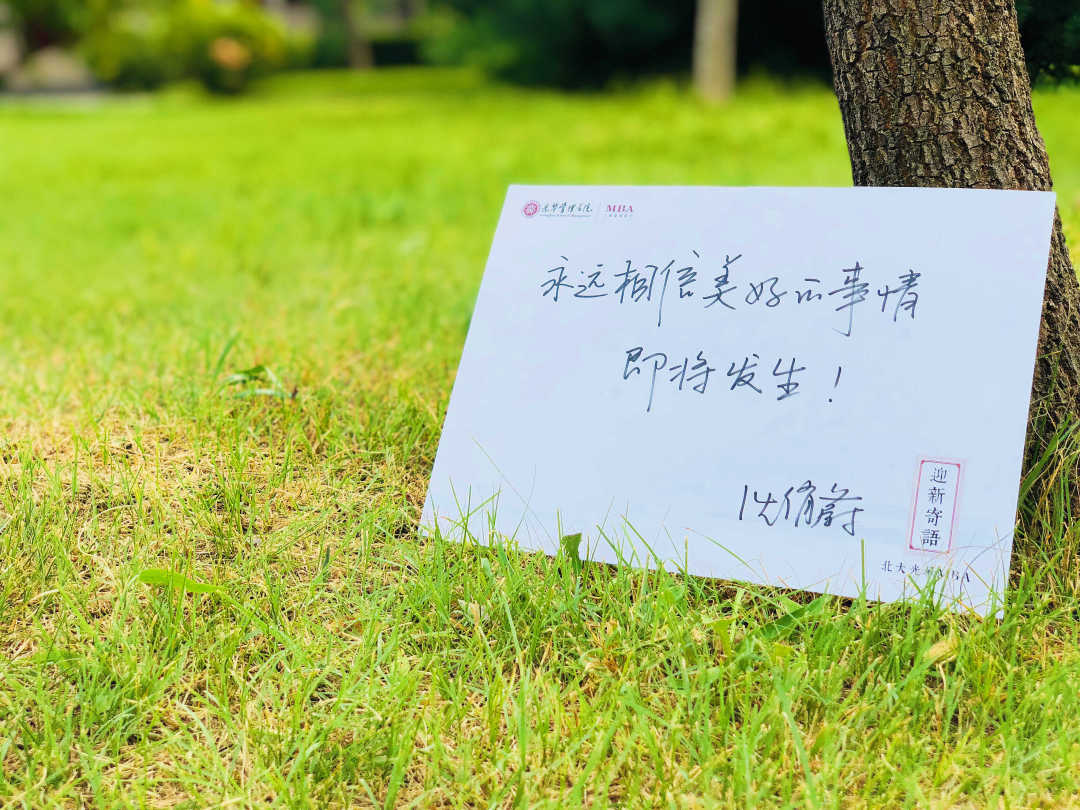 光华管理学院 MBA
永远相信美好的事情
即将发生！
沈俏蔚
迎新寄語
北大光华MBA